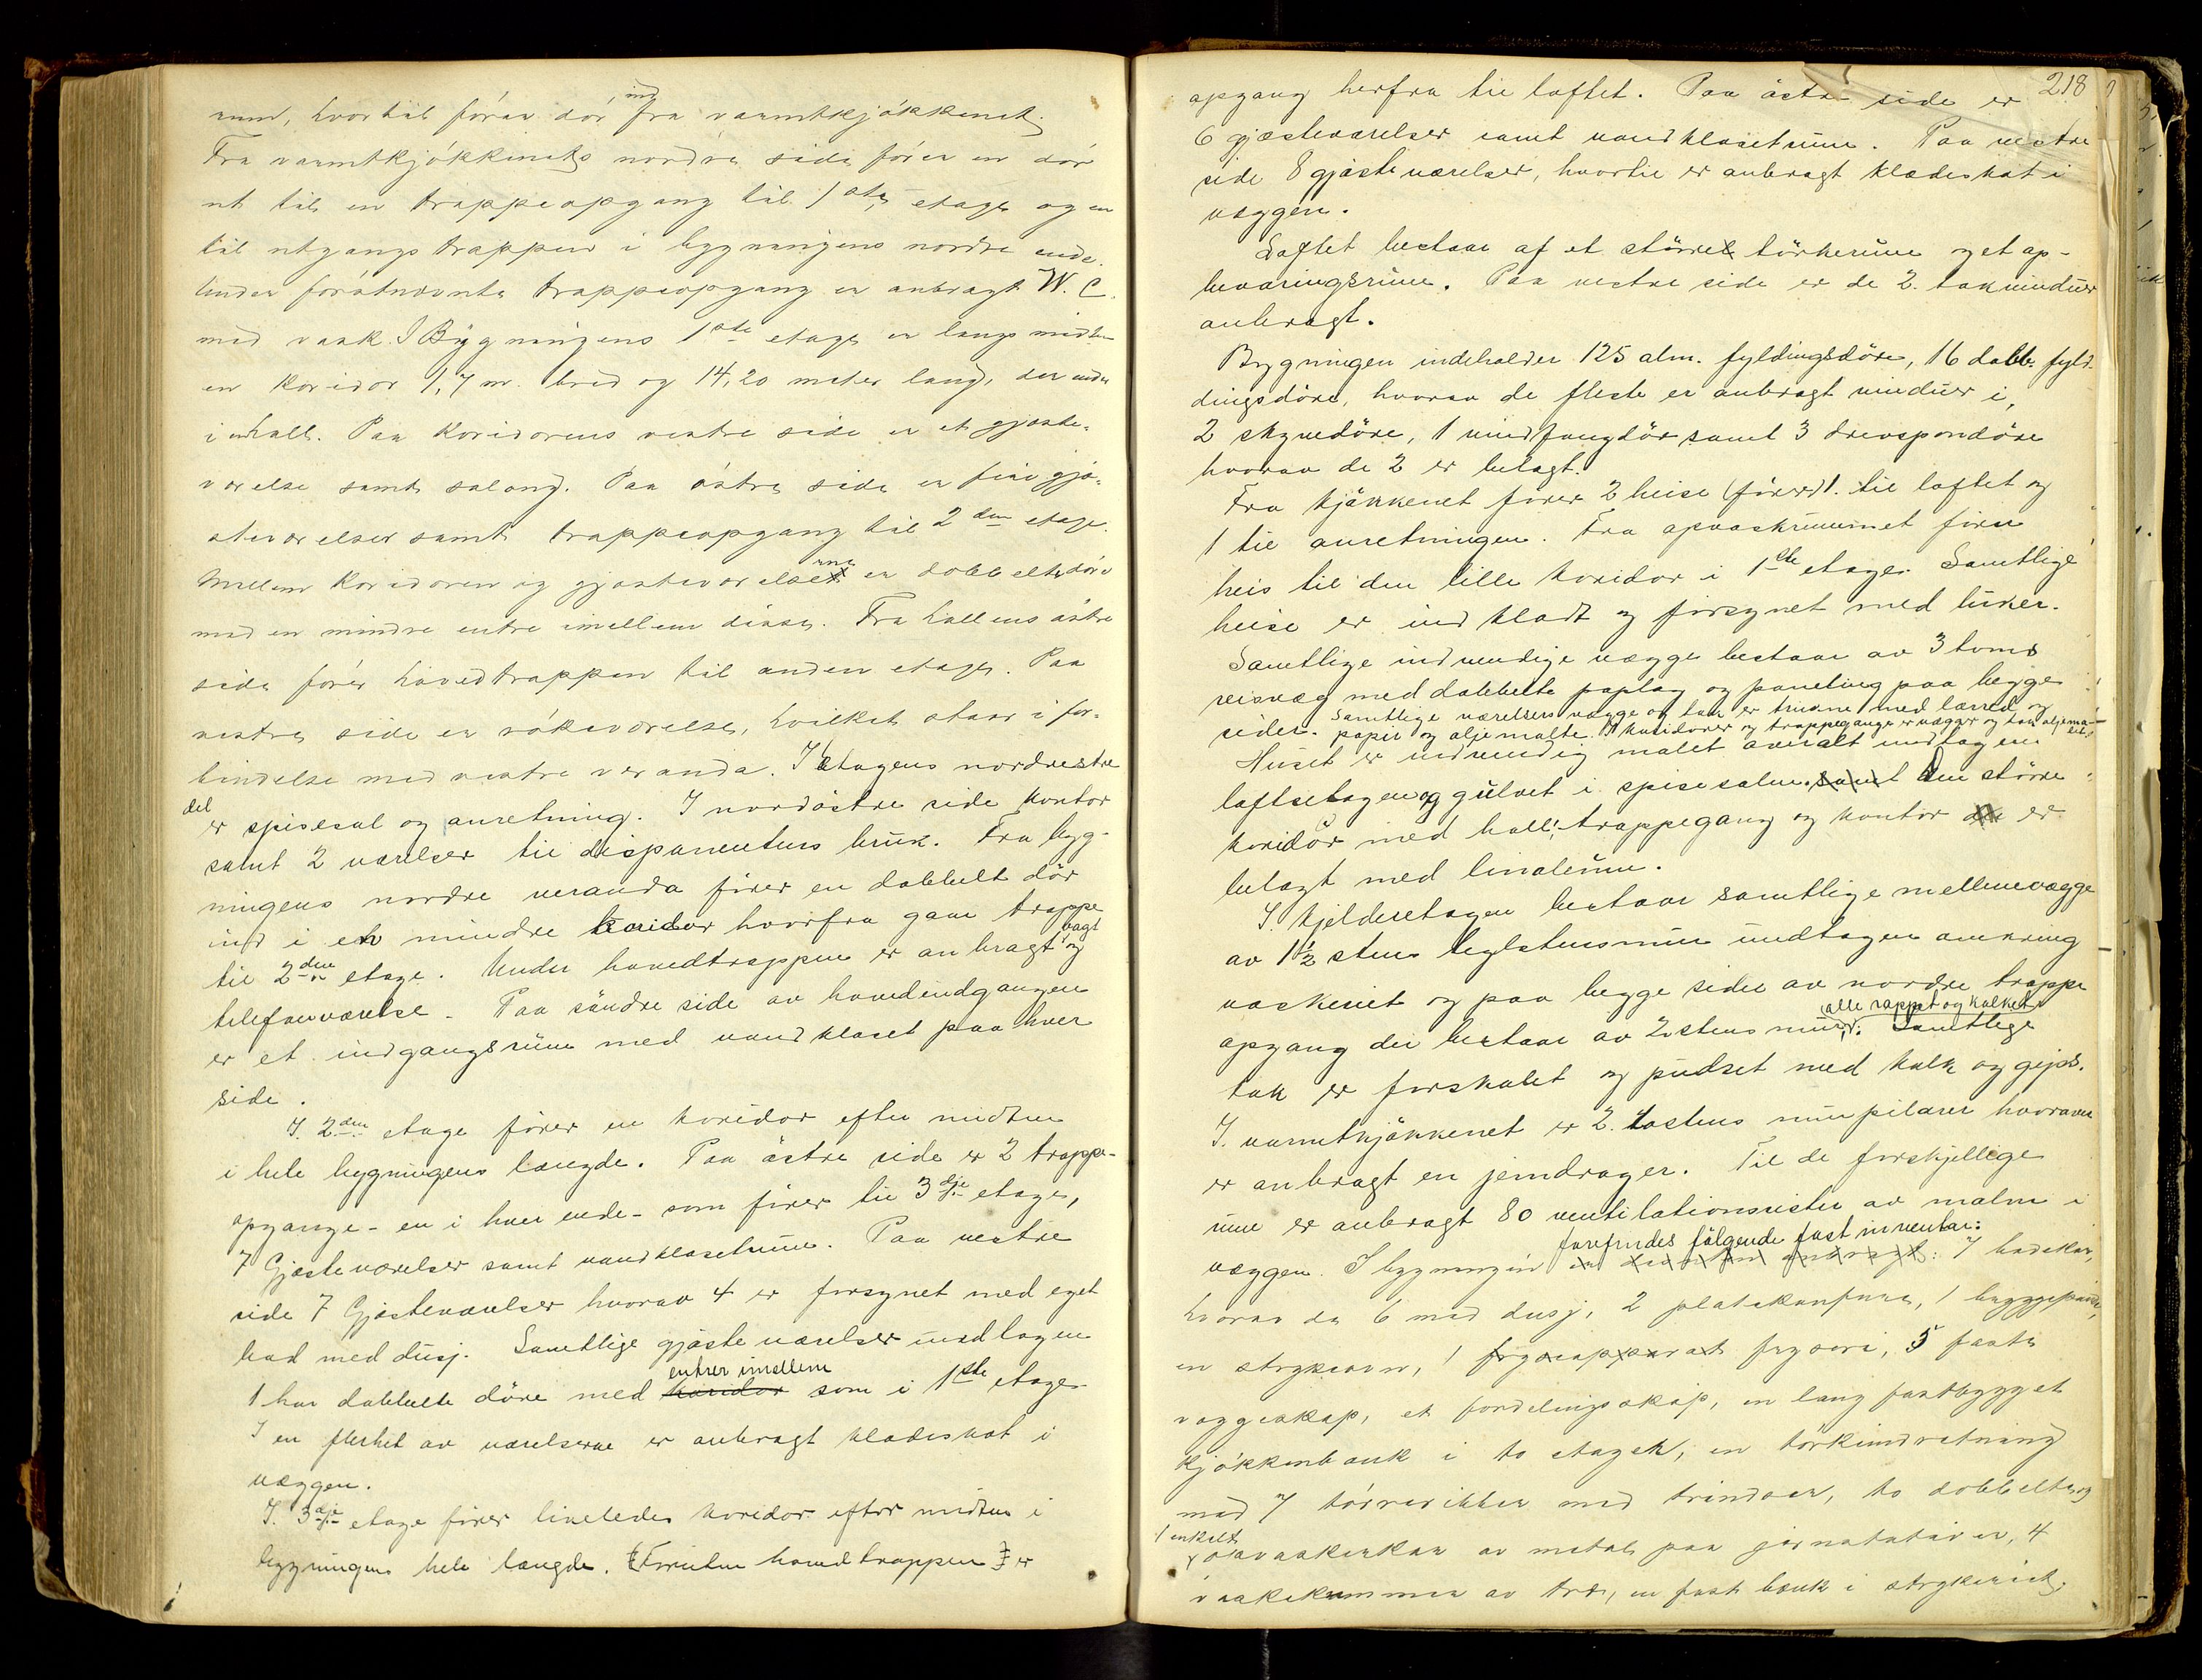 rum, hvortil fører dør ind fra varmtkjøkkenet.
Fra varmtkjøkkenets nordre side fører en dør
ut til en trappeopgang til 1ste etage og en
til utgangstrappen i bygningens nordre ende.
Under førstnævnte trappeopgang er anbragt W. C.
med vask. I Bygningens 1ste etage er langs midten
en koridor 1,7 m. bred og 14,20 meter lang, der ender
i en hall. Paa koridorens vestre side er et gjæste-
værelse samt salong. Paa østre side er fire gjæ-
steværelser samt trappeopgang til 2den etage.
Mellem koridoren og gjæsteværelserne er dobbelte døre
med en mindre entre imellem disse. Fra hallens østre
side fører hovedtrappen til anden etage. Paa
vestre side er røkeværelse, hvilket staar i for-
bindelse med vestre veranda. I etagens nordvestre
del er spisesal og anretning. I nordøstre side kontor
samt 2 værelser til disponentens bruk. Fra byg-
ningens nordre veranda fører en dobbelt dør
ind i en mindre koridor hvorfra gaar trappe
til 2den etage. Under hovedtrappen er anbragt vagt og
telefonværelse. Paa søndre side av hovedindgangen
er et indgangsrum med vandkloset paa hver
side.
I 2den etage fører en koridor efter midten
i hele bygningens længde. Paa østre side er 2 trappe-
opgange - en i hver ende - som fører til 3dje etage,
7 Gjæsteværelser samt vandklosetrum. Paa vestre
side 7 Gjæsteværelser hvorav 4 er forsynet med eget
bad med dusj. Samtlige gjæsteværelser undtagen
1 har dobbelte døre med koridor entreer imellem som i 1ste etage
I en flerhet av værelserne er anbragt klædeskot i
væggen.
I 3dje etage fører likeledes koridor efter midten i
bygningens hele længde. (Foruten hovedtrappen) er
218
opgang herfra til loftet. Paa østre side er
6 gjæsteværelser samt vandklosetrum. Paa vestre
side 8 gjæsteværelser, hvortil er anbragt klædeskot i
væggen.
Loftet bestaar af et større tørkerum og et op-
bevaringsrum. Paa vestre side er de 2 takvinduer
anbragt.
Bygningen indeholder 125 alm. fyldingsdøre, 16 dobb. fyld-
dingsdøre, hvorav de fleste er anbragt vinduer i,
2 skyvedøre, 1 vindfangdør samt 3 drevspondøre
hvorav de 2 er belagt.
Fra kjøkkenet fører 2 heise (fører) 1 til loftet og
1 til anretningen. Fra opvaskrummet fører
heis til den lille koridor i 1ste etage. Samtlige
heise er indklædt og forsynet med luker.
Samtlige indvendige vægge bestaar av 3 toms
reisvæg med dobbelte paplag og paneling paa begge
sider. Samtlige værelsers vægge og tak er trukne med lærred og
papir og oljemalte. I koridorer og trappegange er vægger og tak oljemalet.
Huset er indvendig malet overalt undtagen
loftsetagen og gulvet i spisesalen. samt Den større
koridor med hall, trappegang og kontor er
belagt med linoleum.
I kjelderetagen bestaar samtlige mellemvægge
av 1½ stens teglstensmur undtagen omkring
vaskeriet og paa begge sider av nordre trappe
opgang der bestaar av 2 stens mur, alle rappet og kalket. Samtlige
tak er forskalet og pudset med kalk og gips.
I varmtkjøkkenet er 2 tostens murpilarer hvorover
er anbragt en jerndrager. Til de forskjellige
rum er anbragt 80 ventilationsrister av malm i
væggen. I bygningen forefindes følgende fast inventar: 7 badekar,
hvorav de 6 med dusj, 2 platekomfurer, 1 bryggepanne,
en strykeovn, 1 fryseapparat fryseri, 5 faste
væggeskap, et fordelingsskap, en lang fastbygget
kjøkkenbænk i to etager, en tørkeindretning
med 7 tørrerikker med trindser, to dobbelte og
1 enkelt opvaskerkar av metal paa jernstativer, 4
vaskekummer av træ, en fast bænk i strykeriet.